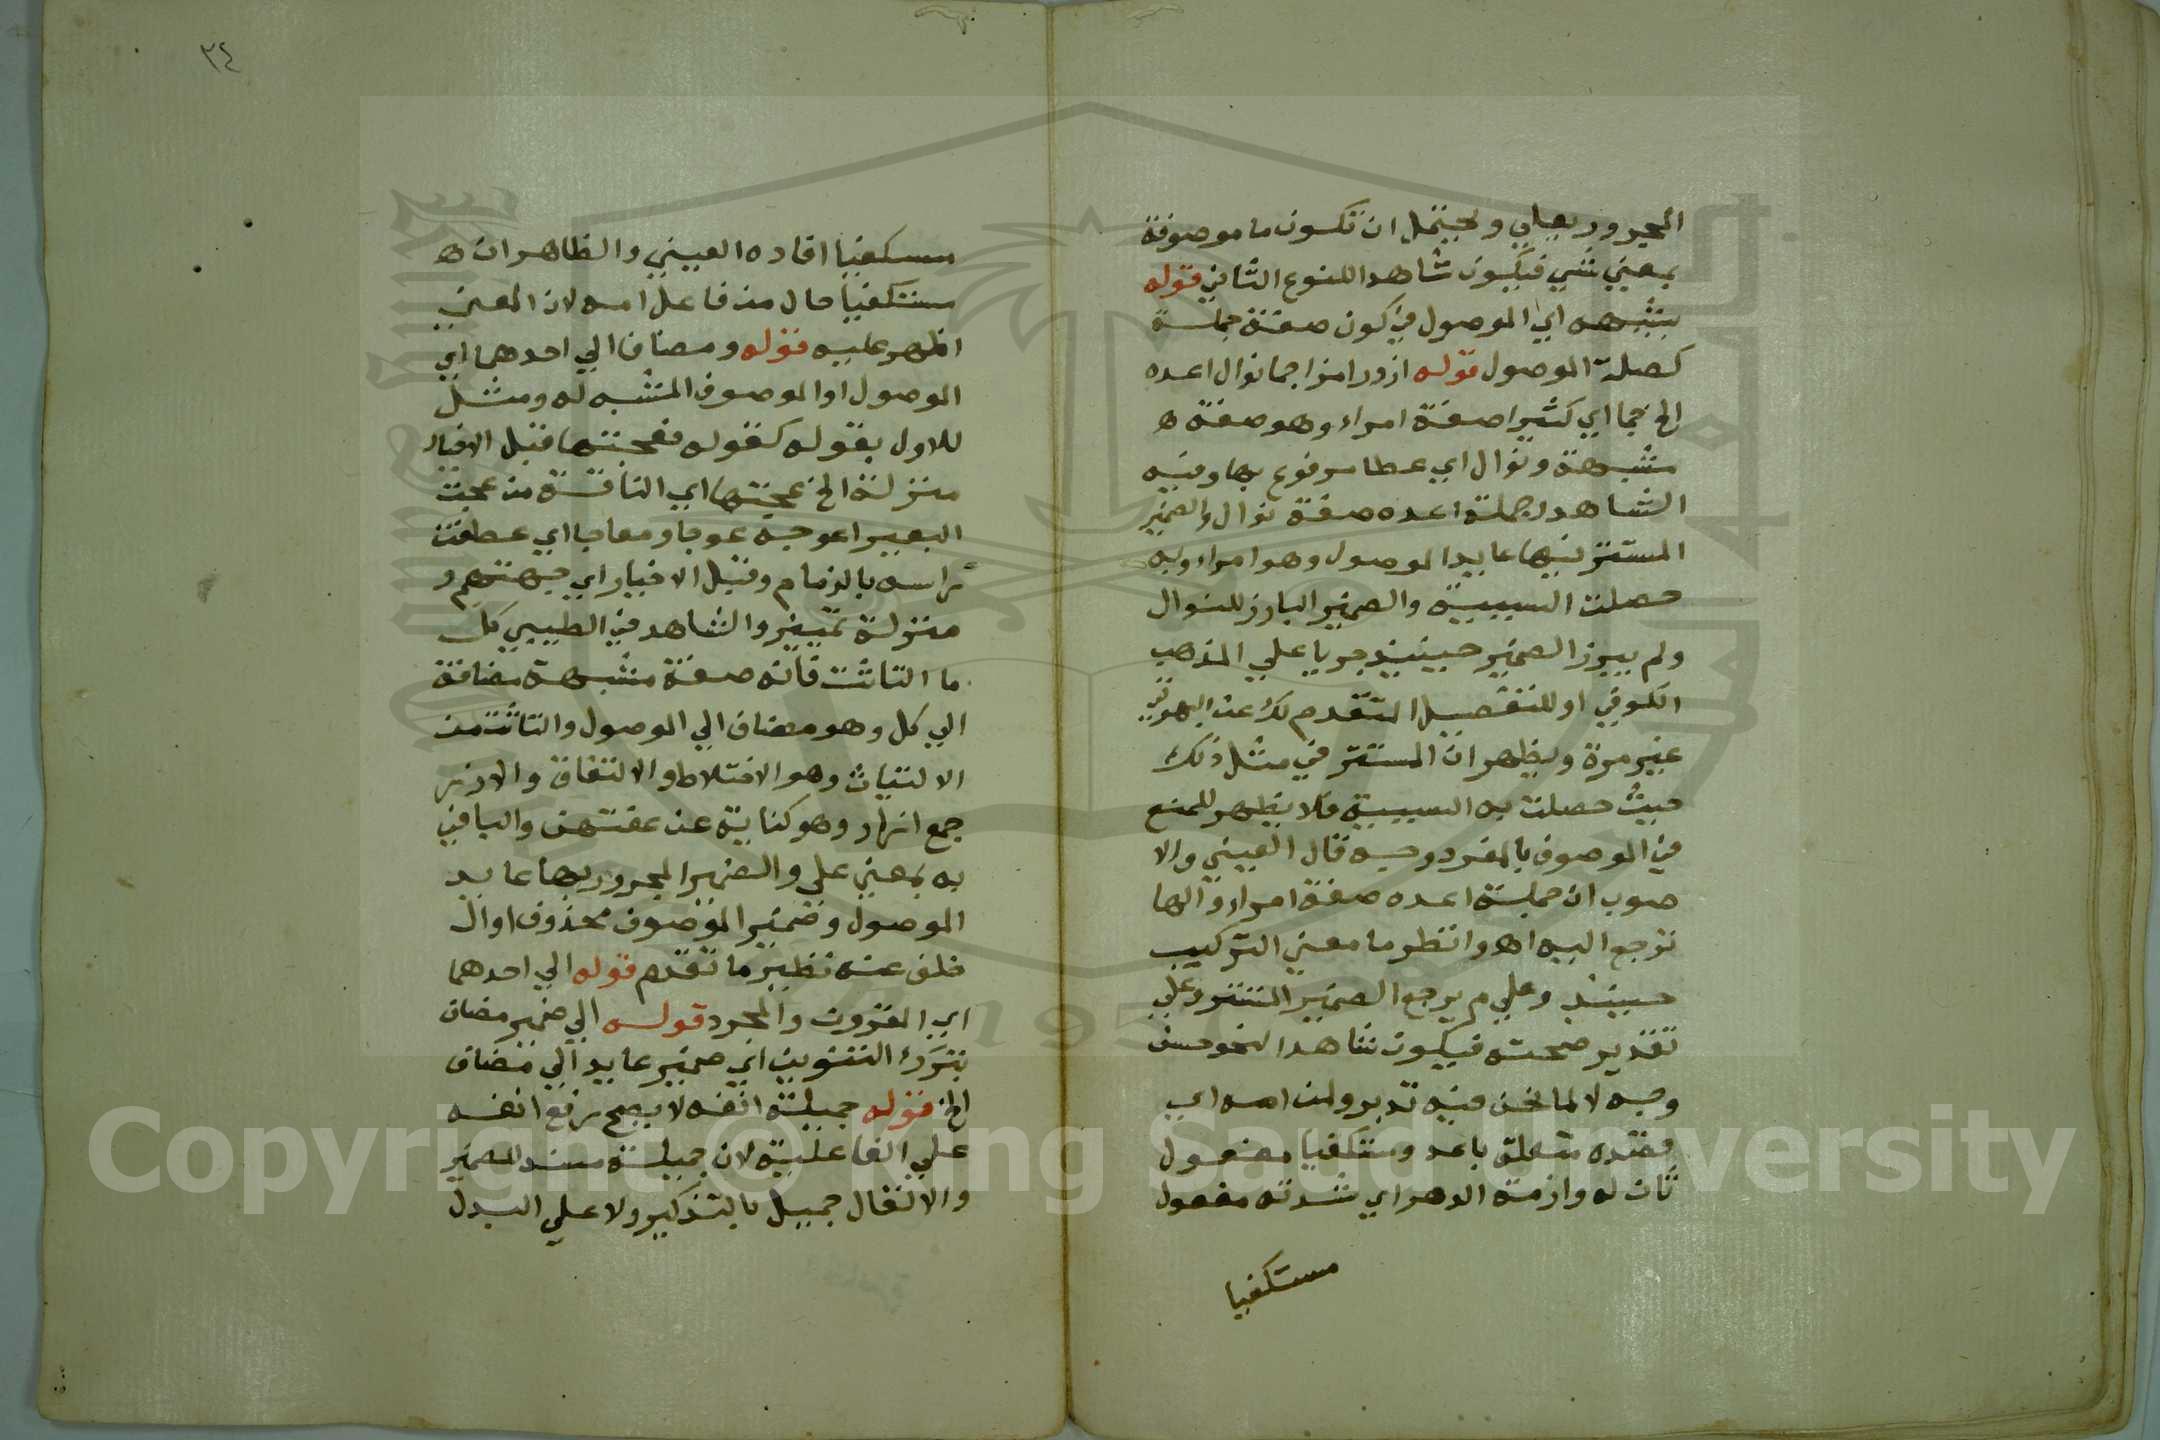 المجرور بعلي ويحتمل ان تكون ما موصوفة
بمعني شي فيكون شاهدا للنوع الثاني قوله
يشبهه اي الموصول في كون صفته جملة
كصلة الموصول قوله ازور امرا جما نوال اعده
الخ جما اي كثيرا صفة امراء وهو صفة ه
مشبهة ونوال اي عطا مرفوع بها وفيه
الشاهد وجملة اعده صفة نوال والضمير
المستتر فيها عايد الموصول وهو امراء وبه
حصلت السببية والضمير البارز للنوال
ولم يبرز الضمير حينيذ جريا علي المذهب
الكوفي او للتفصيل المتقدم لك عن
غير مرة ويظهر ان المستتر في مثل ذلك
حيث حصلت به السببية فلا يظهر للمنع
في الموصوف بالمفرد وجه قال العيني والا
صوب ان جملة اعده صفة امراء والها
ترجع اليه اهو وانظر ما معني التركيب
حينيذ وعلي م يرجع الضمير المستتر وعلي
تقدير صحته فيكون شاهدا لنحو حسن
وجه لا لما نحن فيه تدبر ولمن امه اي
قصده متعلق باعد ومستكفيا مفعول
ثان له وازمة الدهر اي شدته مفعول
مستكفيا
٣٤
مسكفيا افاده العيني والظاهر ان ه
مستكفيا حال من فاعل امه لان المعني
اظهر عليه قوله ومضاف الي احدهما اي
الموصول او الموصوف المشبه له ومثل
للاول بقوله كقوله فعجتها قبل الاخيار
منزلة الخ عجتها اي الناقة من عجت
البعير اعوجه عوجا ومعاجا اي عطفت
راسه بالزمام وقبل الاخيار اي جهتهم و
منزلة تمييز والشاهد في الطيبي كل
ما التاثت فانه صفة مشبهة مضافة
الي كل وهو مضاف الي الموصول والتاثت من
الالتياث وهو الاختلاط والالتفاف والازر
جمع ازار وهو كناية عن عفتهن والبا في
به بمعني علي والضمير المجرور بها عايد
الموصول وضمير الموصوف محذوف او ال
خلف عنه نظير ما تقدم قوله الي احدهما
اي المقرون والمجرد قوله الي ضمير مضاف
بترك التنوين اي ضمير عايد الي مضاف
الخ قوله جميلة انفه لا يصح رفع انفه
علي الفاعلية لان جميلة مسند للضمير
والا لقال جميل بالتذكير ولا علي البدل
Copyright © King Saud University